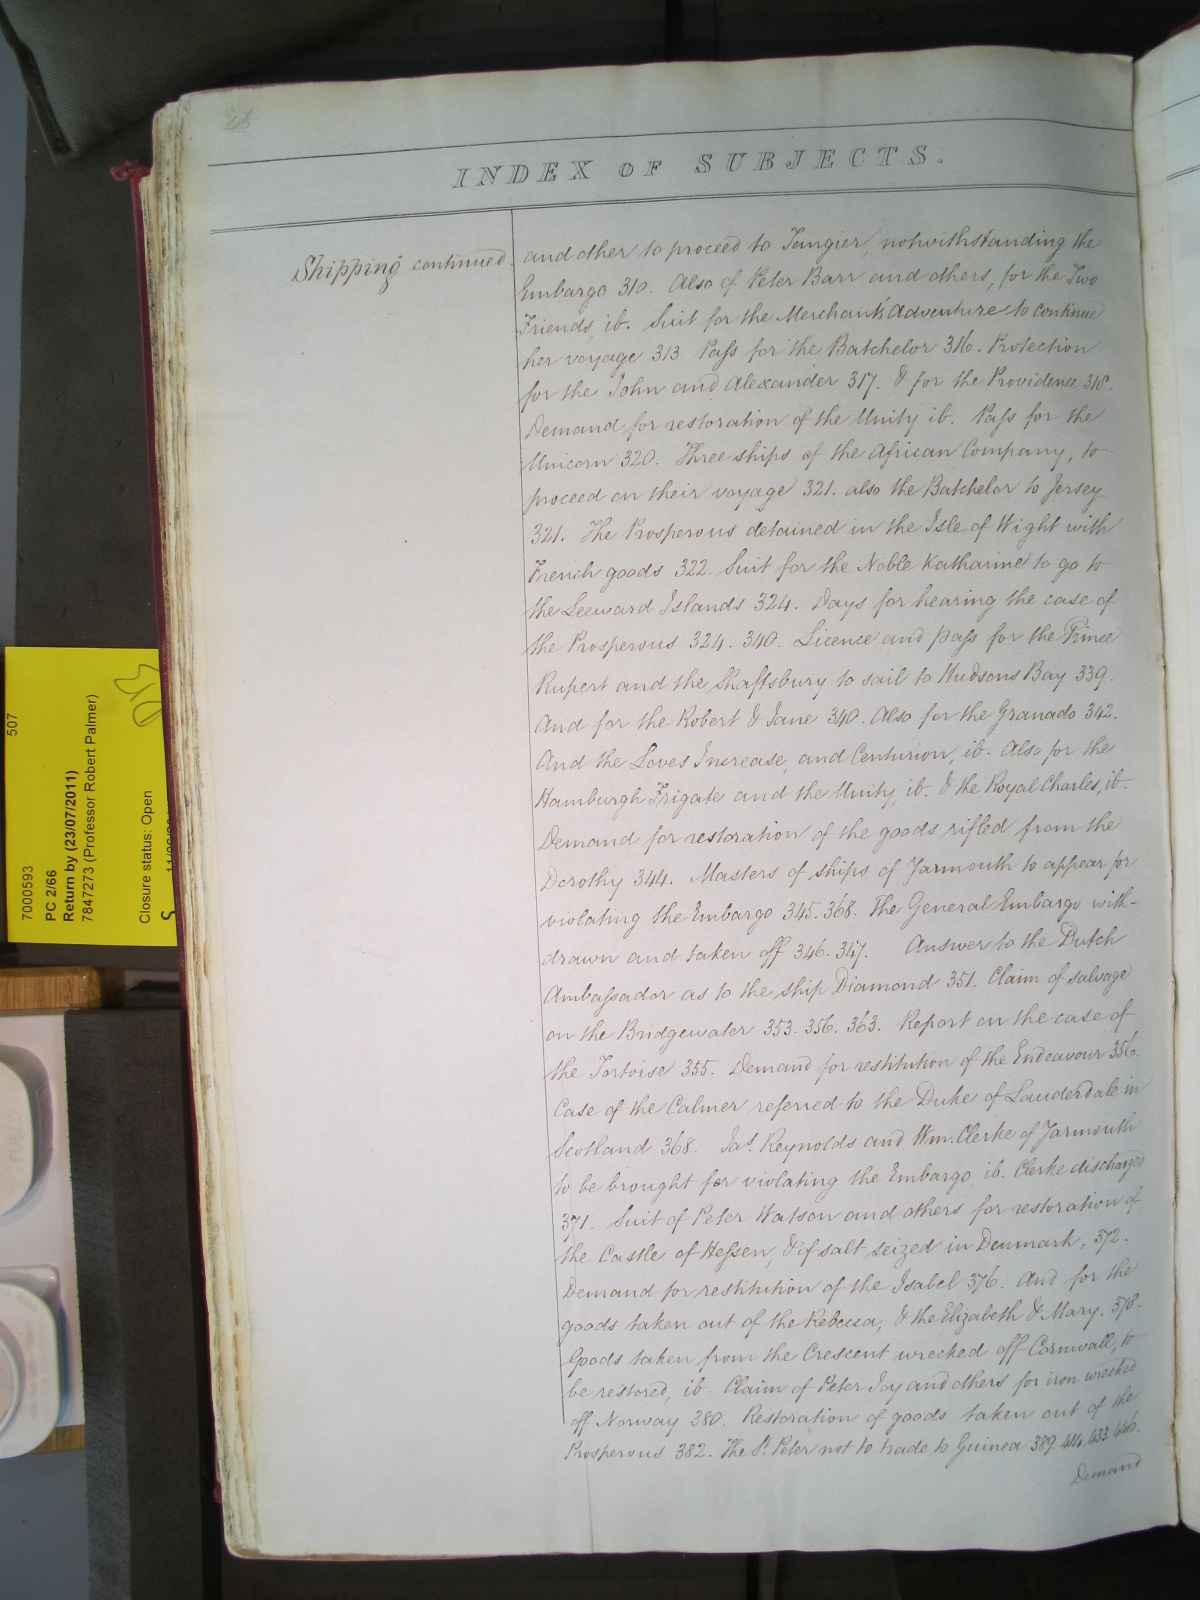 26
INDEX OF SUBJECTS.
Shipping continued
and other to proceed to Tangier, notwithstanding the
Embargo 310. Also of Peter Barr and others, for the Two
Friends, ib. Suit for the Merchant's Adventure to continue
her voyage 313 Pass for the Batchelor 316. Protection
for the John and Alexander 317. & for the Providence 318.
Demand for restoration of the Unity ib. Pass for the
Unicorn 320. Three ships of the African Company, to
proceed on their voyage 321. also the Batchelor to Jersey
321. The Prosperous detained in the Isle of Wight with
French goods 322. Suit for the Noble Katharine to go to
the Leeward Islands 324. Days for hearing the case of
the Prosperous 324. 340. Licence and pass for the Prince
Rupert and the Shaftsbury to sail to Hudsons Bay 339.
And for the Robert & Jane 340. Also for the Granado 342.
And the Loves Increase, and Centurion, ib. Also for the
Hamburgh Frigate and the Unity, ib. & the Royal Charles, ib.
Demand for restoration of the goods rifled from the
Dorothy 344. Masters of ships of Yarmouth to appear for
violating the Embargo 345. 368. The General Embargo with-
drawn and taken off 346. 347. Answer to the Dutch
Ambassador as to the ship Diamond 351. Claim of salvage
on the Bridgewater 353. 356. 363. Report on the case of
the Tortoise 355. Demand for restitution of the Endeavour 356.
Case of the Calmer referred to the Duke of Lauderdale in
Scotland 368. Jas. Reynolds and Wm. Clerke of Yarmouth
to be brought for violating the Embargo, ib. Clerke discharged
371. Suit of Peter Watson and others for restoration of
the Castle of Hessen, & of salt, seized in Denmark, 372.
Demand for restitution of the Isabel 376. And for the
goods taken out of the Rebecca, & the Elizabeth & Mary. 378.
Goods taken from the Crescent wrecked off Cornwall, to
be restored, ib. Claim of Peter Joy and others for iron wrecked
off Norway 380. Restoration of goods taken out of the
Prosperous 382. The St. Peter not to trade to Guinea 389. 414. 433. 446.
Demand
7000593
507
PC 2/66
Return by (23/07/2011)
7847273 (Professor Robert Palmer)
Closure status: Open